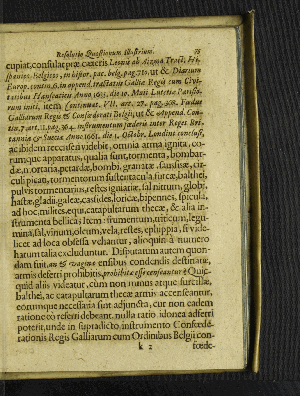 Resolutio Quæstionum Illustrium. 75
cupiat, consulat præ cæteris Leonis ab Aizma Tract, Hi-
spanico Belgicos, in histor. pac. belg. pag. 710. ut & Diarium
Europ. contin. 6. in append. tractatus Galliæ Regis cum Civi-
tatibus Hanseaticis Anno 1655. die 10. Maii Lutetiæ Parisio-
rum initi, item Continuat. VII. art. 27. pag. 368. Fœdus
Galliarum Regis & Confœderati Belgii, ut & Append. Con-
tin. 7. art. 11. pag. 364. instrumentum fœderis inter Reges Bri-
tanniæ & Sueciæ Anno 1661. die 1. Octobr. Londini conclusi,
ac ibidem recensita videbit, omnia arma ignita, eo-
rumque apparatus, qualia sunt, tormenta, bombar-
dæ, mortaria, petardæ, bombi, granatæ, saucissæ, cir-
culi picati, tormentorum sustentacula, furcæ, balthei,
pulvis tormentarius, restes igniariæ, sal nitrum, globi,
hastæ, gladii, galeæ, cassides, loricæ, bipennes, spicula,
ad hoc milites, equi, catapultarum thecæ, & alia in-
strumenta bellica; Item: frumentum, triticum, legu-
mina, sal, vinum, oleum, vela, restes, ephippia, si vide-
licet ad loca obsessa vehantur, alioquin à numero
harum talia excluduntur. Disputatum autem quon-
dam fuit, an & vaginæ ensibus condendis destinatæ,
armis deferri prohibitis, prohibitæ esse censeantur? Quic-
quid aliis videatur, cum non minus atque furcillæ,
balthei, ac catapultarum thecæ armis accenseantur,
eorumque necessaria sint adjuncta, cur non eadem
ratione eo referri debeant, nulla ratio idonea afferri
poterit, unde in supradicto instrumento Confœde-
rationis Regis Galliarum cum Ordinibus Belgii con-
k 2 fœde-